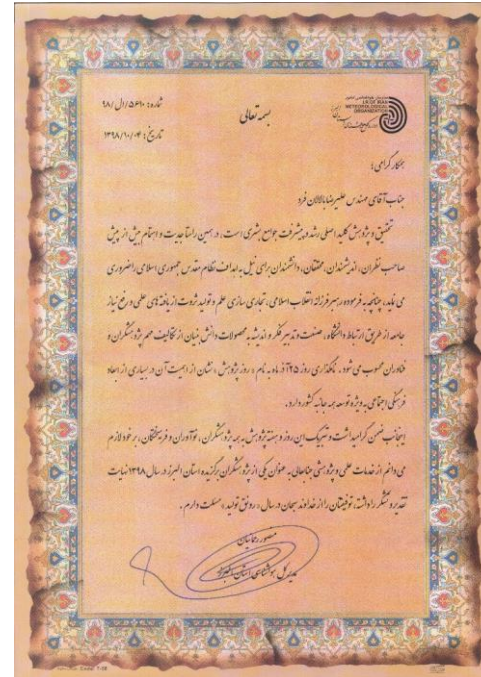 سازمان هواشناسی کشور
I.R.OF IRAN
METEOROLOGICAL
ORGANIZATION
شماره: ۵۶۱۰/ال/۹۸
بسمه تعالی
تاریخ: ۱۳۹۸/۱۰/۰۴
همکار گرامی؛
جناب آقای مهندس علیرضا بالالان فرد
تحقیق و پژوهش کلید اصلی رشد و پیشرفت جوامع بشری است، در همین راستا جدیت و اهتمام بیش از پیش
صاحب نظران، اندیشمندان، محققان، دانشمندان برای نیل به اهداف نظام مقدس جمهوری اسلامی را ضروری
می یابد، چنانچه به فرموده رهبر فرزانه انقلاب اسلامی، تجاری سازی علم و تولید ثروت از یافته های علمی و رفع نیاز
جامعه از طریق ارتباط دانشگاه، صنعت و تدبیر فکر و اندیشه به محصولات دانش بنیان از تکالیف مهم پژوهشگران و
فناوران محسوب می شود. نامگذاری روز ۲۵ آذر ماه به نام «روز پژوهش» نشان از اهمیت آن در بسیاری از ابعاد
فرهنگی اجتماعی به ویژه توسعه همه جانبه کشور دارد.
اینجانب ضمن گرامیداشت و تبریک این روز و هفته پژوهش به همه پژوهشگران، نوآوران و فرهیختگان، بر خود لازم
می دانم از خدمات علمی و پژوهشی جنابعالی به عنوان یکی از پژوهشگران برگزیده استان البرز در سال ۱۳۹۸ نهایت
تقدیر و تشکر را داشته، توفیقتان را از خداوند سبحان در سال «رونق تولید» مسئلت دارم.
منصور رحمانیان
مدیر کل هواشناسی استان البرز